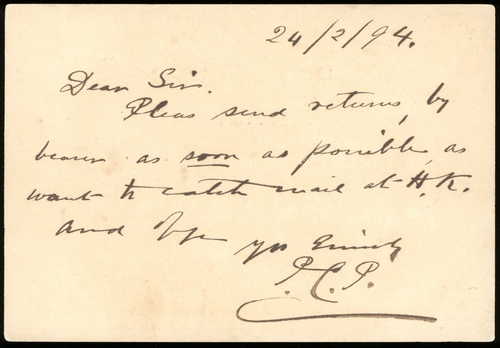 24/2/94.
Dear Sir.
Pleas send returns, by
bearer as soon as possible, as
want to catch mail at H.K.
and
P.C.P.